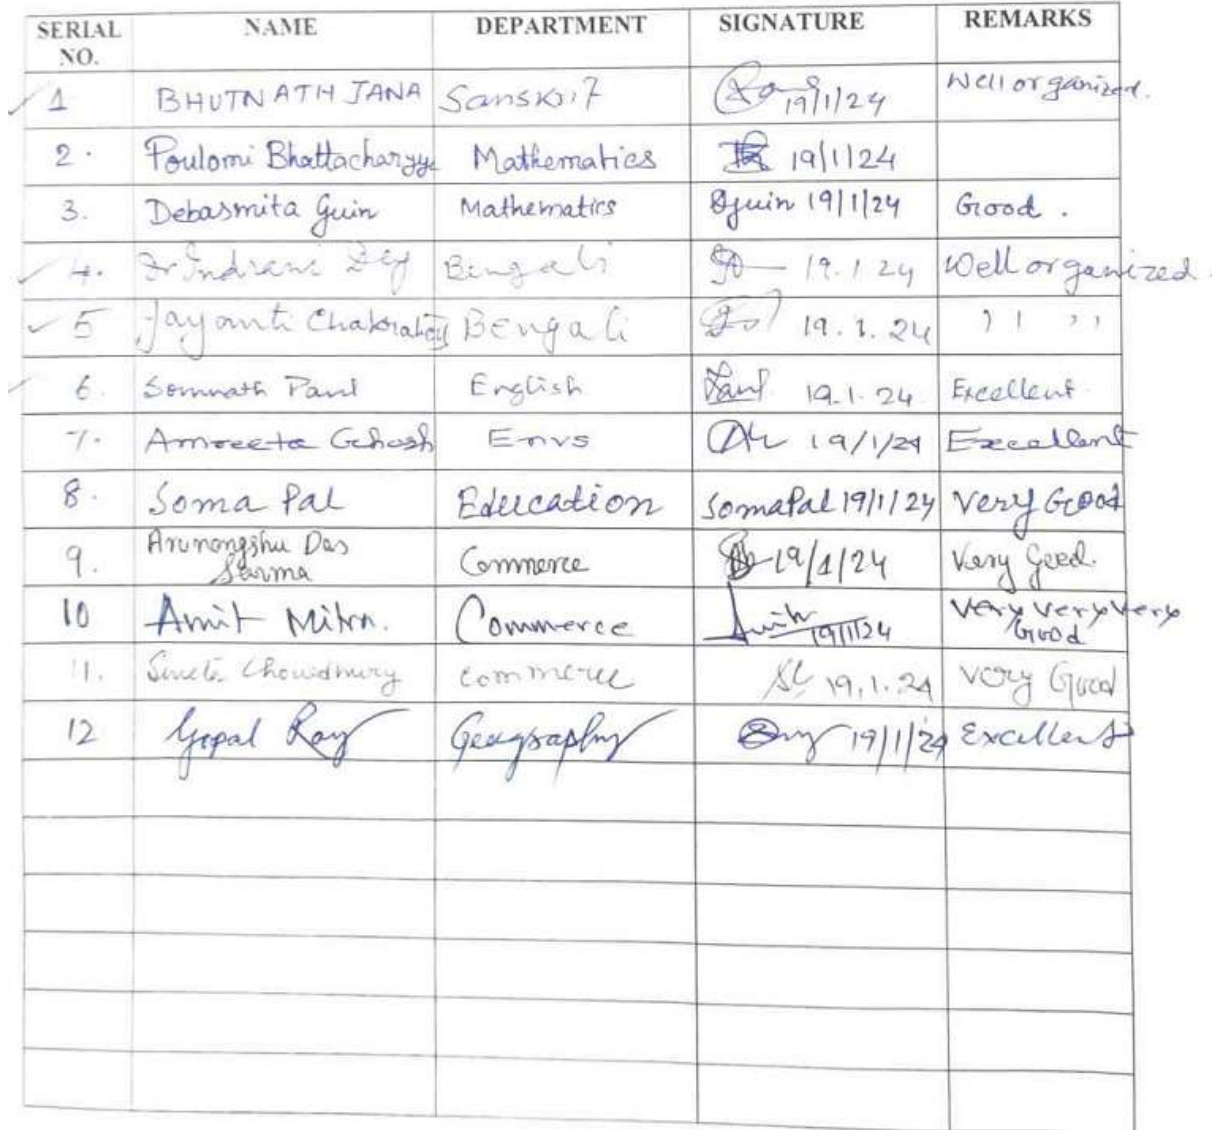 SERIAL NO. NAME DEPARTMENT SIGNATURE REMARKS
1 BHUTNATH JANA Sanskrit 19/1/24 Well organized.
2. Poulomi Bhattacharyya Mathematics 19/1/24
3. Debasmita Guin Mathematics DGuin 19/1/24 Good.
4. Dr Indrani Dey Bengali 19.1.24 Well organized.
5 Jayanti Chakraborty Bengali 19.1.24 " "
6. Somnath Paul English Paul 19.1.24 Excellent.
7. Amreeta Ghosh Envs 19/1/24 Excellent
8. Soma Pal Education Soma Pal 19/1/24 Very Good
9. Arunangshu Das Sarma Commerce 19/1/24 Very Good.
10 Amit Mitra. Commerce Amit 19/1/24 Very very very Good
11. Choudhury Commerce SC 19.1.24 Very Good
12 Gopal Roy Geography 19/1/24 Excellent